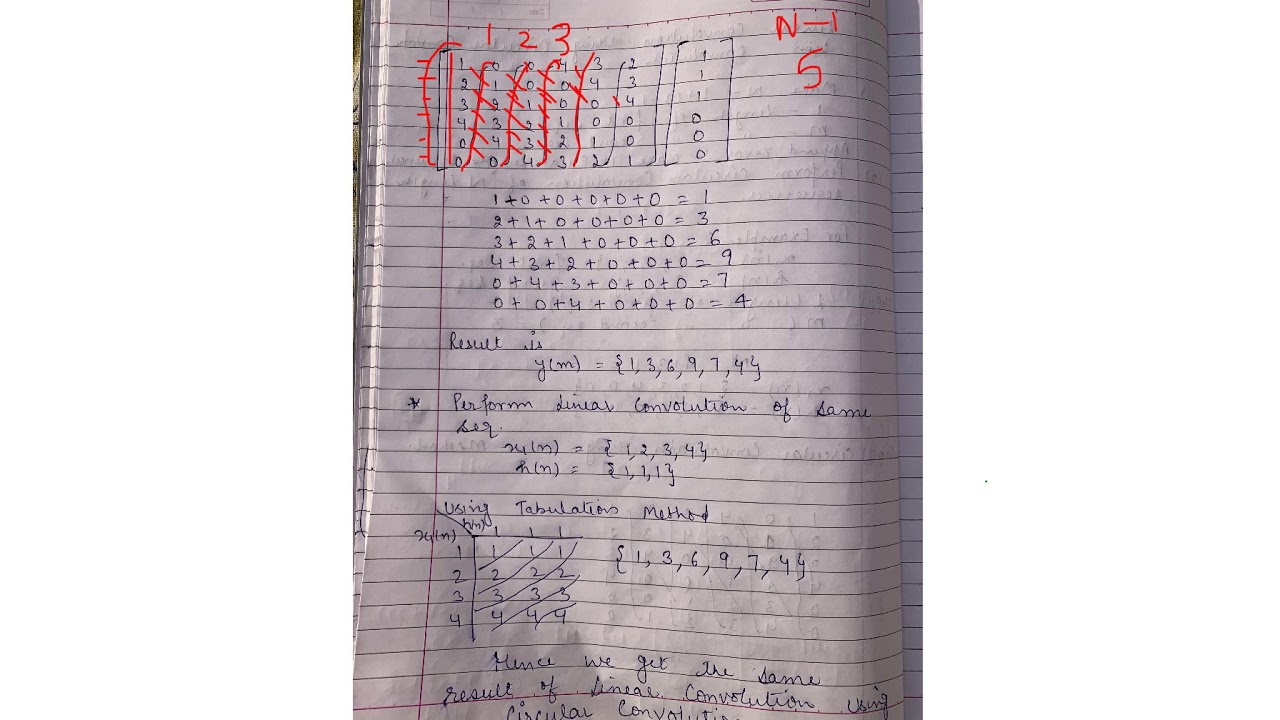 1 2 3 N-1
5
1 0 0 4 3 2 1
2 1 0 0 4 3 1
3 2 1 0 0 4 1
4 3 2 1 0 0 0
0 4 3 2 1 0 0
0 0 4 3 2 1 0
1+0+0+0+0+0 = 1
2+1+0+0+0+0 = 3
3+2+1+0+0+0 = 6
4+3+2+0+0+0 = 9
0+4+3+0+0+0 = 7
0+0+4+0+0+0 = 4
Result is
y(m) = {1, 3, 6, 9, 7, 4}
* Perform Linear Convolution of same
seq.
x1(n) = {1, 2, 3, 4}
h(n) = {1, 1, 1}
Using Tabulation Method
h(n) 1 1 1
x1(n)
1 1 1 1 {1, 3, 6, 9, 7, 4}
2 2 2 2
3 3 3 3
4 4 4 4
Hence we get the same
result of Linear Convolution using
Circular Convolution